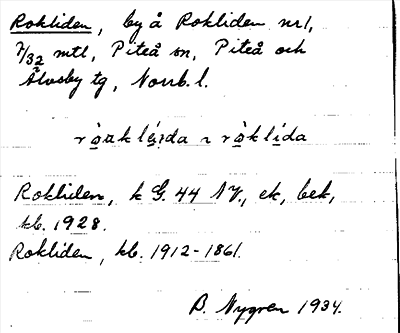 Rokliden, by å Rokliden nr 1,
7/32 mtl, Piteå sn, Piteå och
Älvsby tg, Norrb. l.
Rokliden, k G. 44 NV., ek, bek,
kb. 1928.
Rokliden, kb. 1912-1861.
B. Nygren 1934.